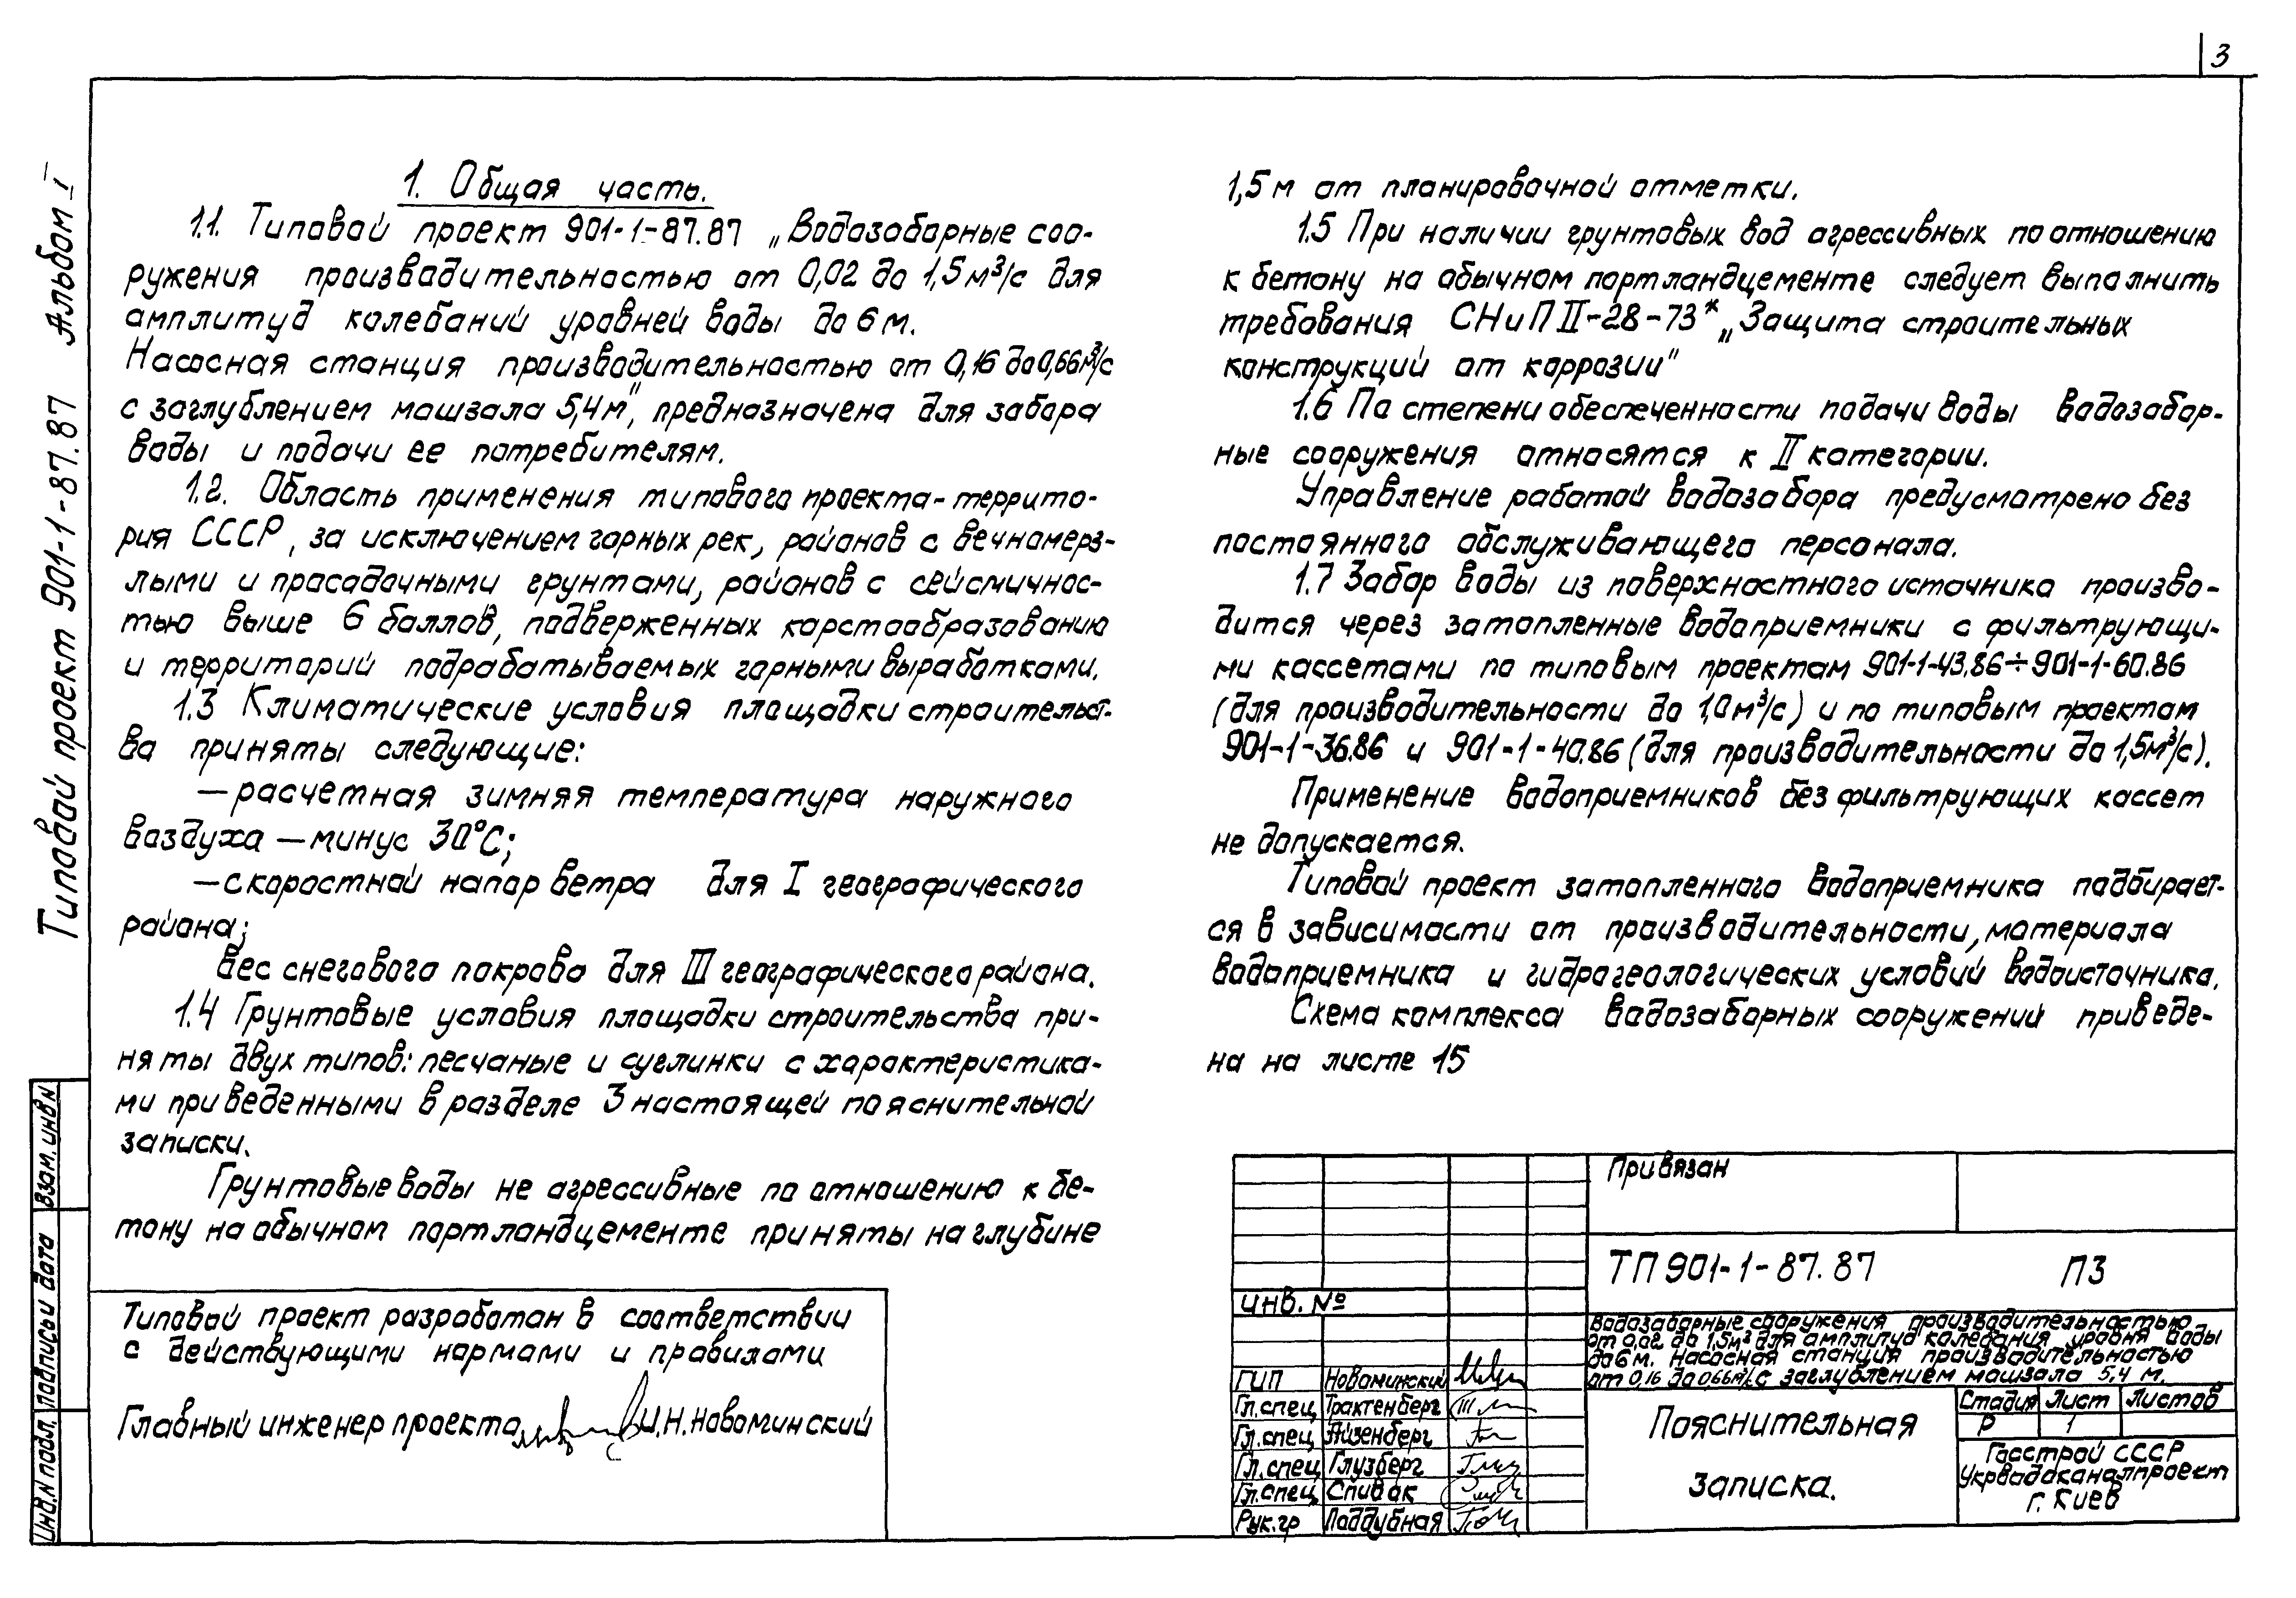 3
Типовой проект 901-1-87.87 Альбом I
1. Общая часть.
1.1. Типовой проект 901-1-87.87 „Водозаборные соо-
ружения производительностью от 0,02 до 1,5 м³/с для
амплитуд колебаний уровней воды до 6 м.
Насосная станция производительностью от 0,16 до 0,66 м³/с
с заглублением машзала 5,4 м", предназначена для забора
воды и подачи ее потребителям.
1.2. Область применения типового проекта - террито-
рия СССР, за исключением горных рек, районов с вечномерз-
лыми и просадочными грунтами, районов с сейсмичнос-
тью выше 6 баллов, подверженных карстообразованию
и территорий подрабатываемых горными выработками.
1.3 Климатические условия площадки строительст-
ва приняты следующие:
— расчетная зимняя температура наружного
воздуха — минус 30°С;
— скоростной напор ветра для I географического
района;
вес снегового покрова для III географического района.
1.4 Грунтовые условия площадки строительства при-
няты двух типов: песчаные и суглинки с характеристика-
ми приведенными в разделе 3 настоящей пояснительной
записки.
Грунтовые воды не агрессивные по отношению к бе-
тону на обычном портландцементе приняты на глубине
1,5 м от планировочной отметки.
1.5 При наличии грунтовых вод агрессивных по отношению
к бетону на обычном портландцементе следует выполнить
требования СНиП II-28-73* „Защита строительных
конструкций от коррозии"
1.6 По степени обеспеченности подачи воды водозабор-
ные сооружения относятся к II категории.
Управление работой водозабора предусмотрено без
постоянного обслуживающего персонала.
1.7 Забор воды из поверхностного источника произво-
дится через затопленные водоприемники с фильтрующи-
ми кассетами по типовым проектам 901-1-43.86÷901-1-60.86
(для производительности до 1,0 м³/с) и по типовым проектам
901-1-36.86 и 901-1-40.86 (для производительности до 1,5 м³/с).
Применение водоприемников без фильтрующих кассет
не допускается.
Типовой проект затопленного водоприемника подбирает-
ся в зависимости от производительности, материала
водоприемника и гидрогеологических условий водоисточника.
Схема комплекса водозаборных сооружений приведе-
на на листе 15
Типовой проект разработан в соответствии
с действующими нормами и правилами
Главный инженер проекта И.Н. Новоминский
Инв.N подл. Подпись и дата Взам. инв.N
Привязан
Инв. №
ТП 901-1-87.87 ПЗ
Водозаборные сооружения производительностью
от 0,02 до 1,5 м³ для амплитуд колебания уровня воды
до 6 м. Насосная станция производительностью
от 0,16 до 0,66 м³/с с заглублением машзала 5,4 м.
ГИП Новоминский
Гл.спец Трактенберг
Гл.спец Айзенберг
Гл.спец Глузберг
Гл.спец Спивак
Рук.гр Поддубная
Пояснительная
записка.
Стадия Лист Листов
Р 1
Госстрой СССР
Укрводоканалпроект
г. Киев